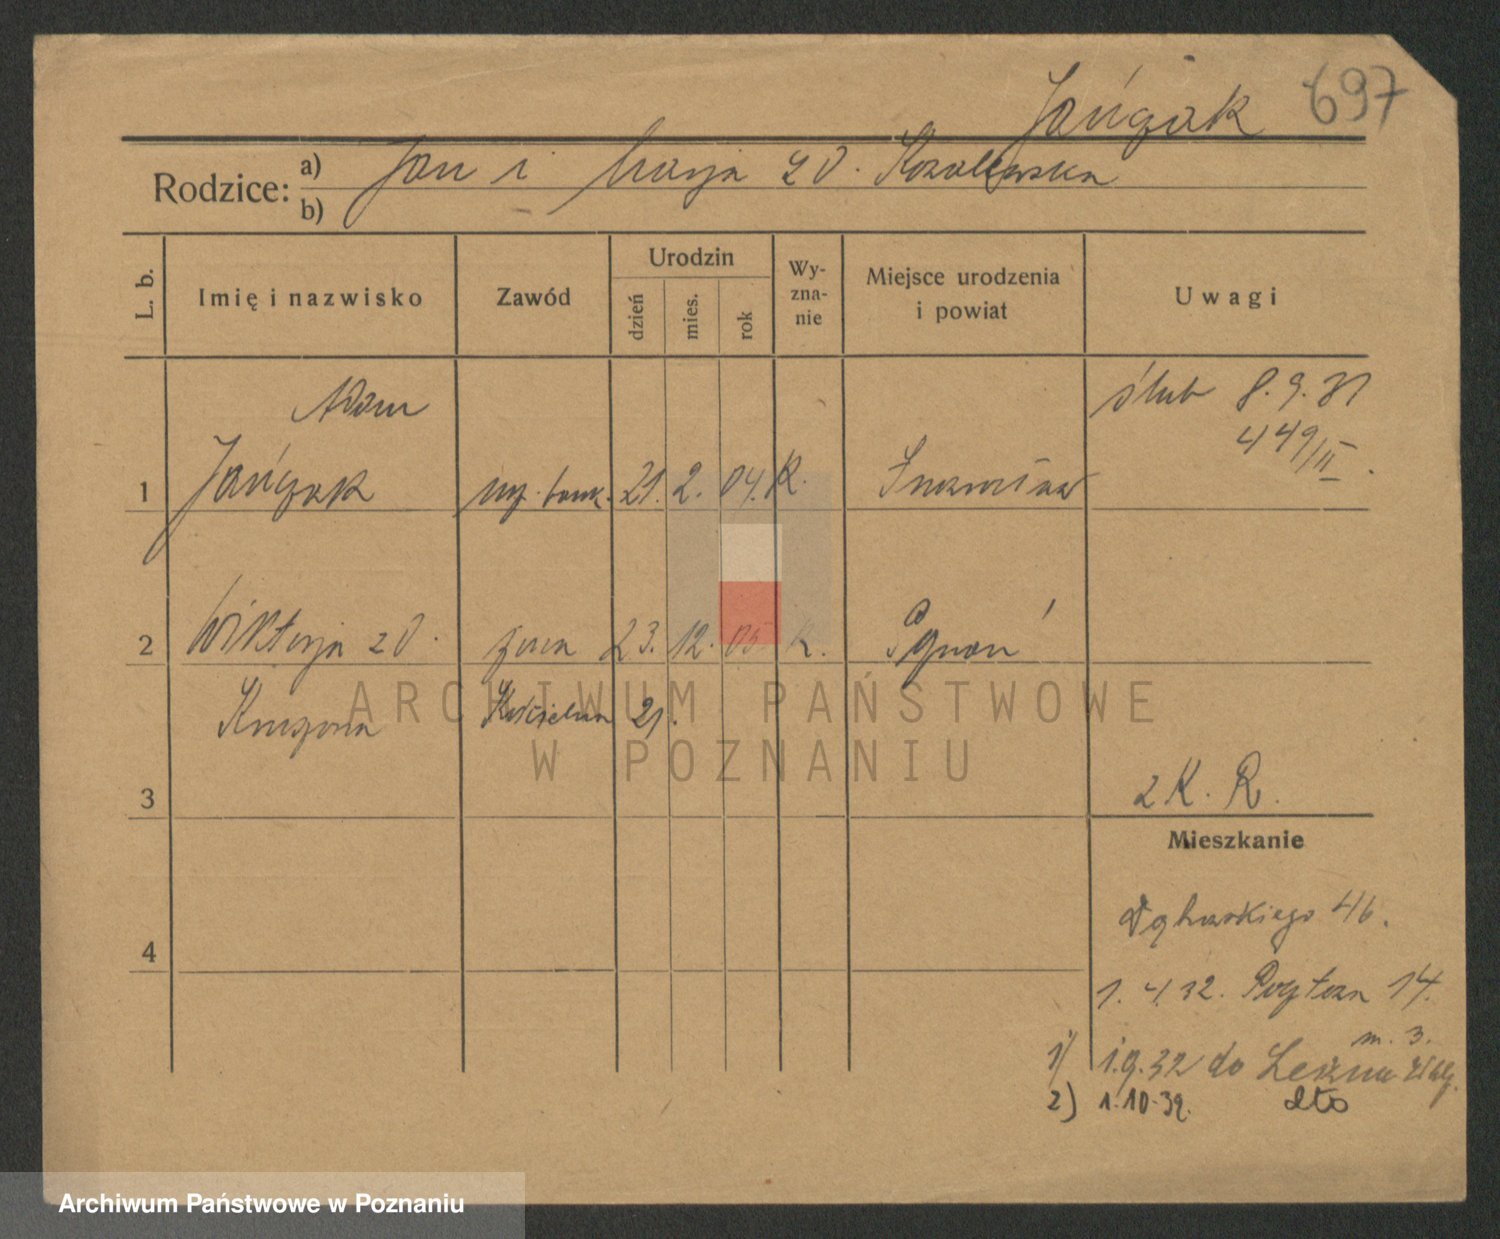 Jańczak 697
Rodzice: a) Jan i Marja z d. Kowalewska
b)
L. b. Imię i nazwisko Zawód Urodzin dzień mies. rok Wy-zna-nie Miejsce urodzenia i powiat Uwagi
Adam ślub 8.9.31
449/II.
1 Jańczak urz. bank. 21. 2. 04. K. Inowrocław
2 Wiktorja z d. żona 23. 12. 05 K. Poznań
Kościelna 21.
ARCHIWUM PAŃSTWOWE
W POZNANIU
3 2 K. R.
Mieszkanie
Dąbrowskiego 46.
4
1. 4. 32. Pocztowa 14.
m. 3.
1) 1.9.32 do
2) 1.10.32. dto
Archiwum Państwowe w Poznaniu